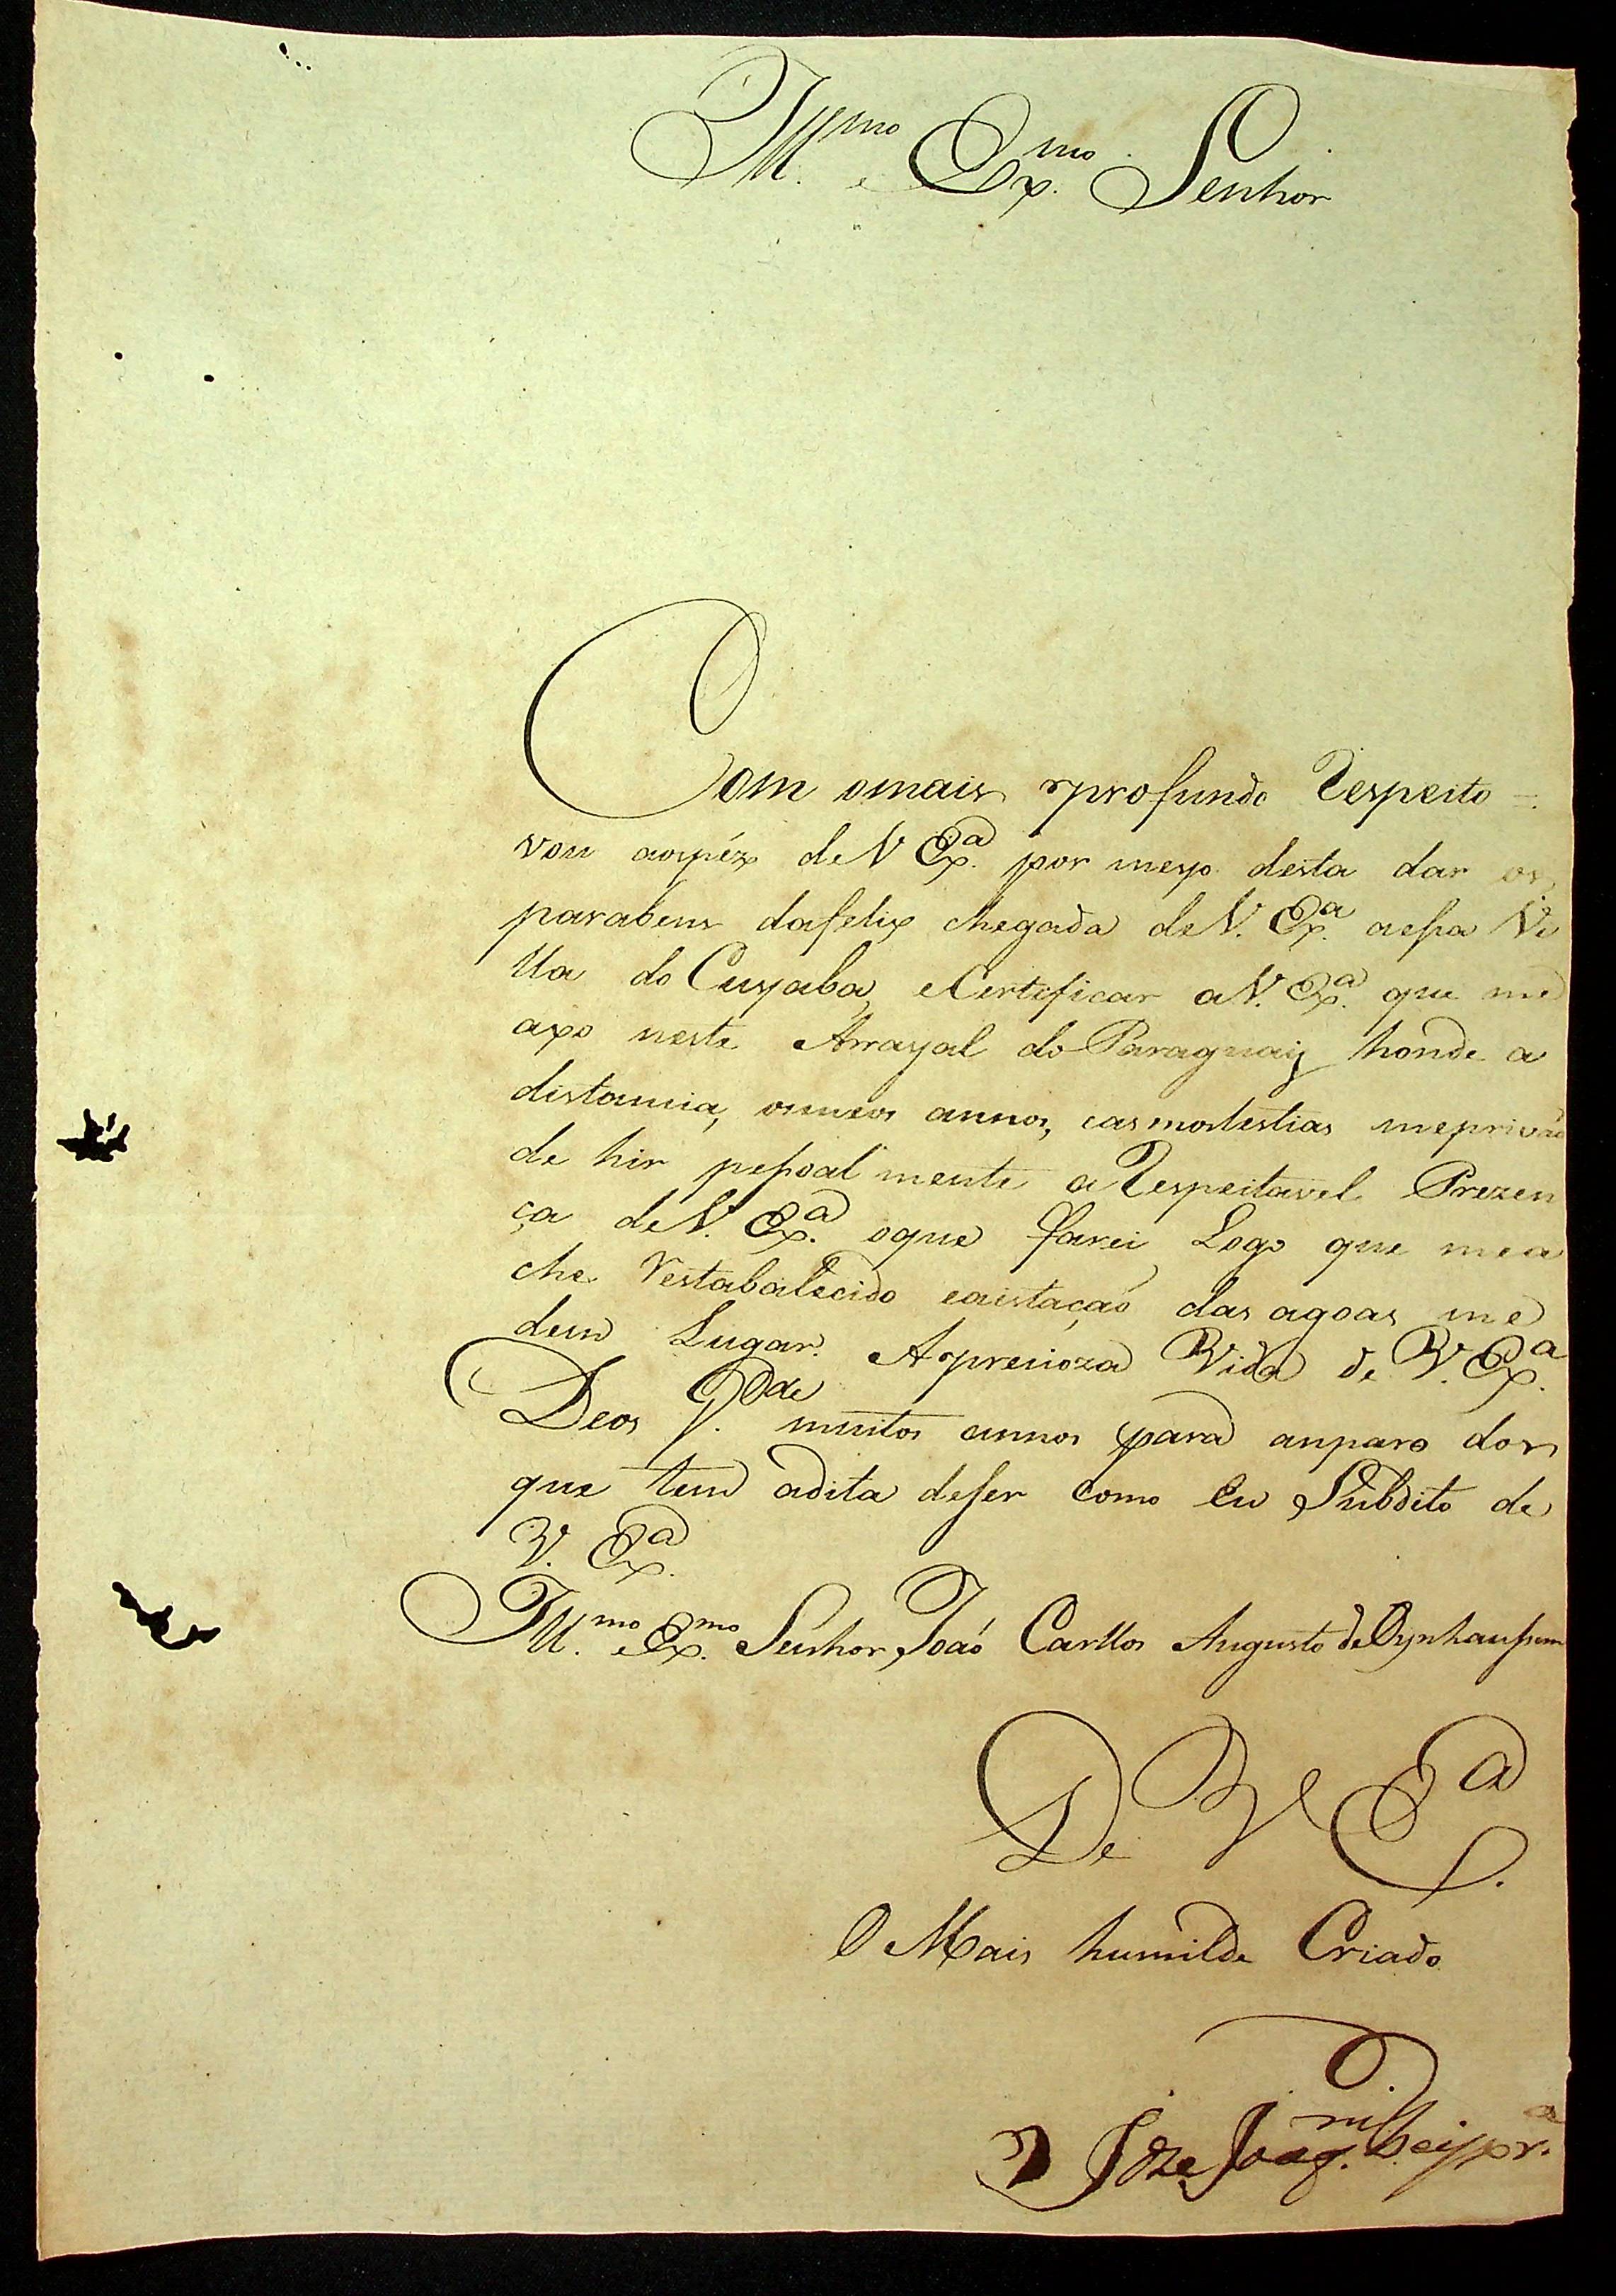 Ill.mo e Ex.mo Senhor
Com omais profundo Respeito =
vou aospéz de V Ex.a por meyo desta dar os
parabens dafelix chegada de V. Ex.a aessa Vi
lla do Cuyaba, eCertificar a V. Ex.a que me
axo neste Arrayal do Paraguay honde a
distancia, osmeos annos, easmolestias meprivão
de hir pessoal mente a Respeitavel Prezen
ça de V. Ex.a oque farei Logo que mea
che Restabalecido eaistação das agoas me
dem Lugar. Aprecioza Vida de V. Ex.a
Deos G.de muitos annos para anparo dos
que tem adita deser como Eu Subdito de
V. Ex.a
Ill.mo e Ex.mo Senhor João Carllos Augusto de Oynhaussem
De V Ex.a
O Mais humilde Criado
Joze Joaq.m